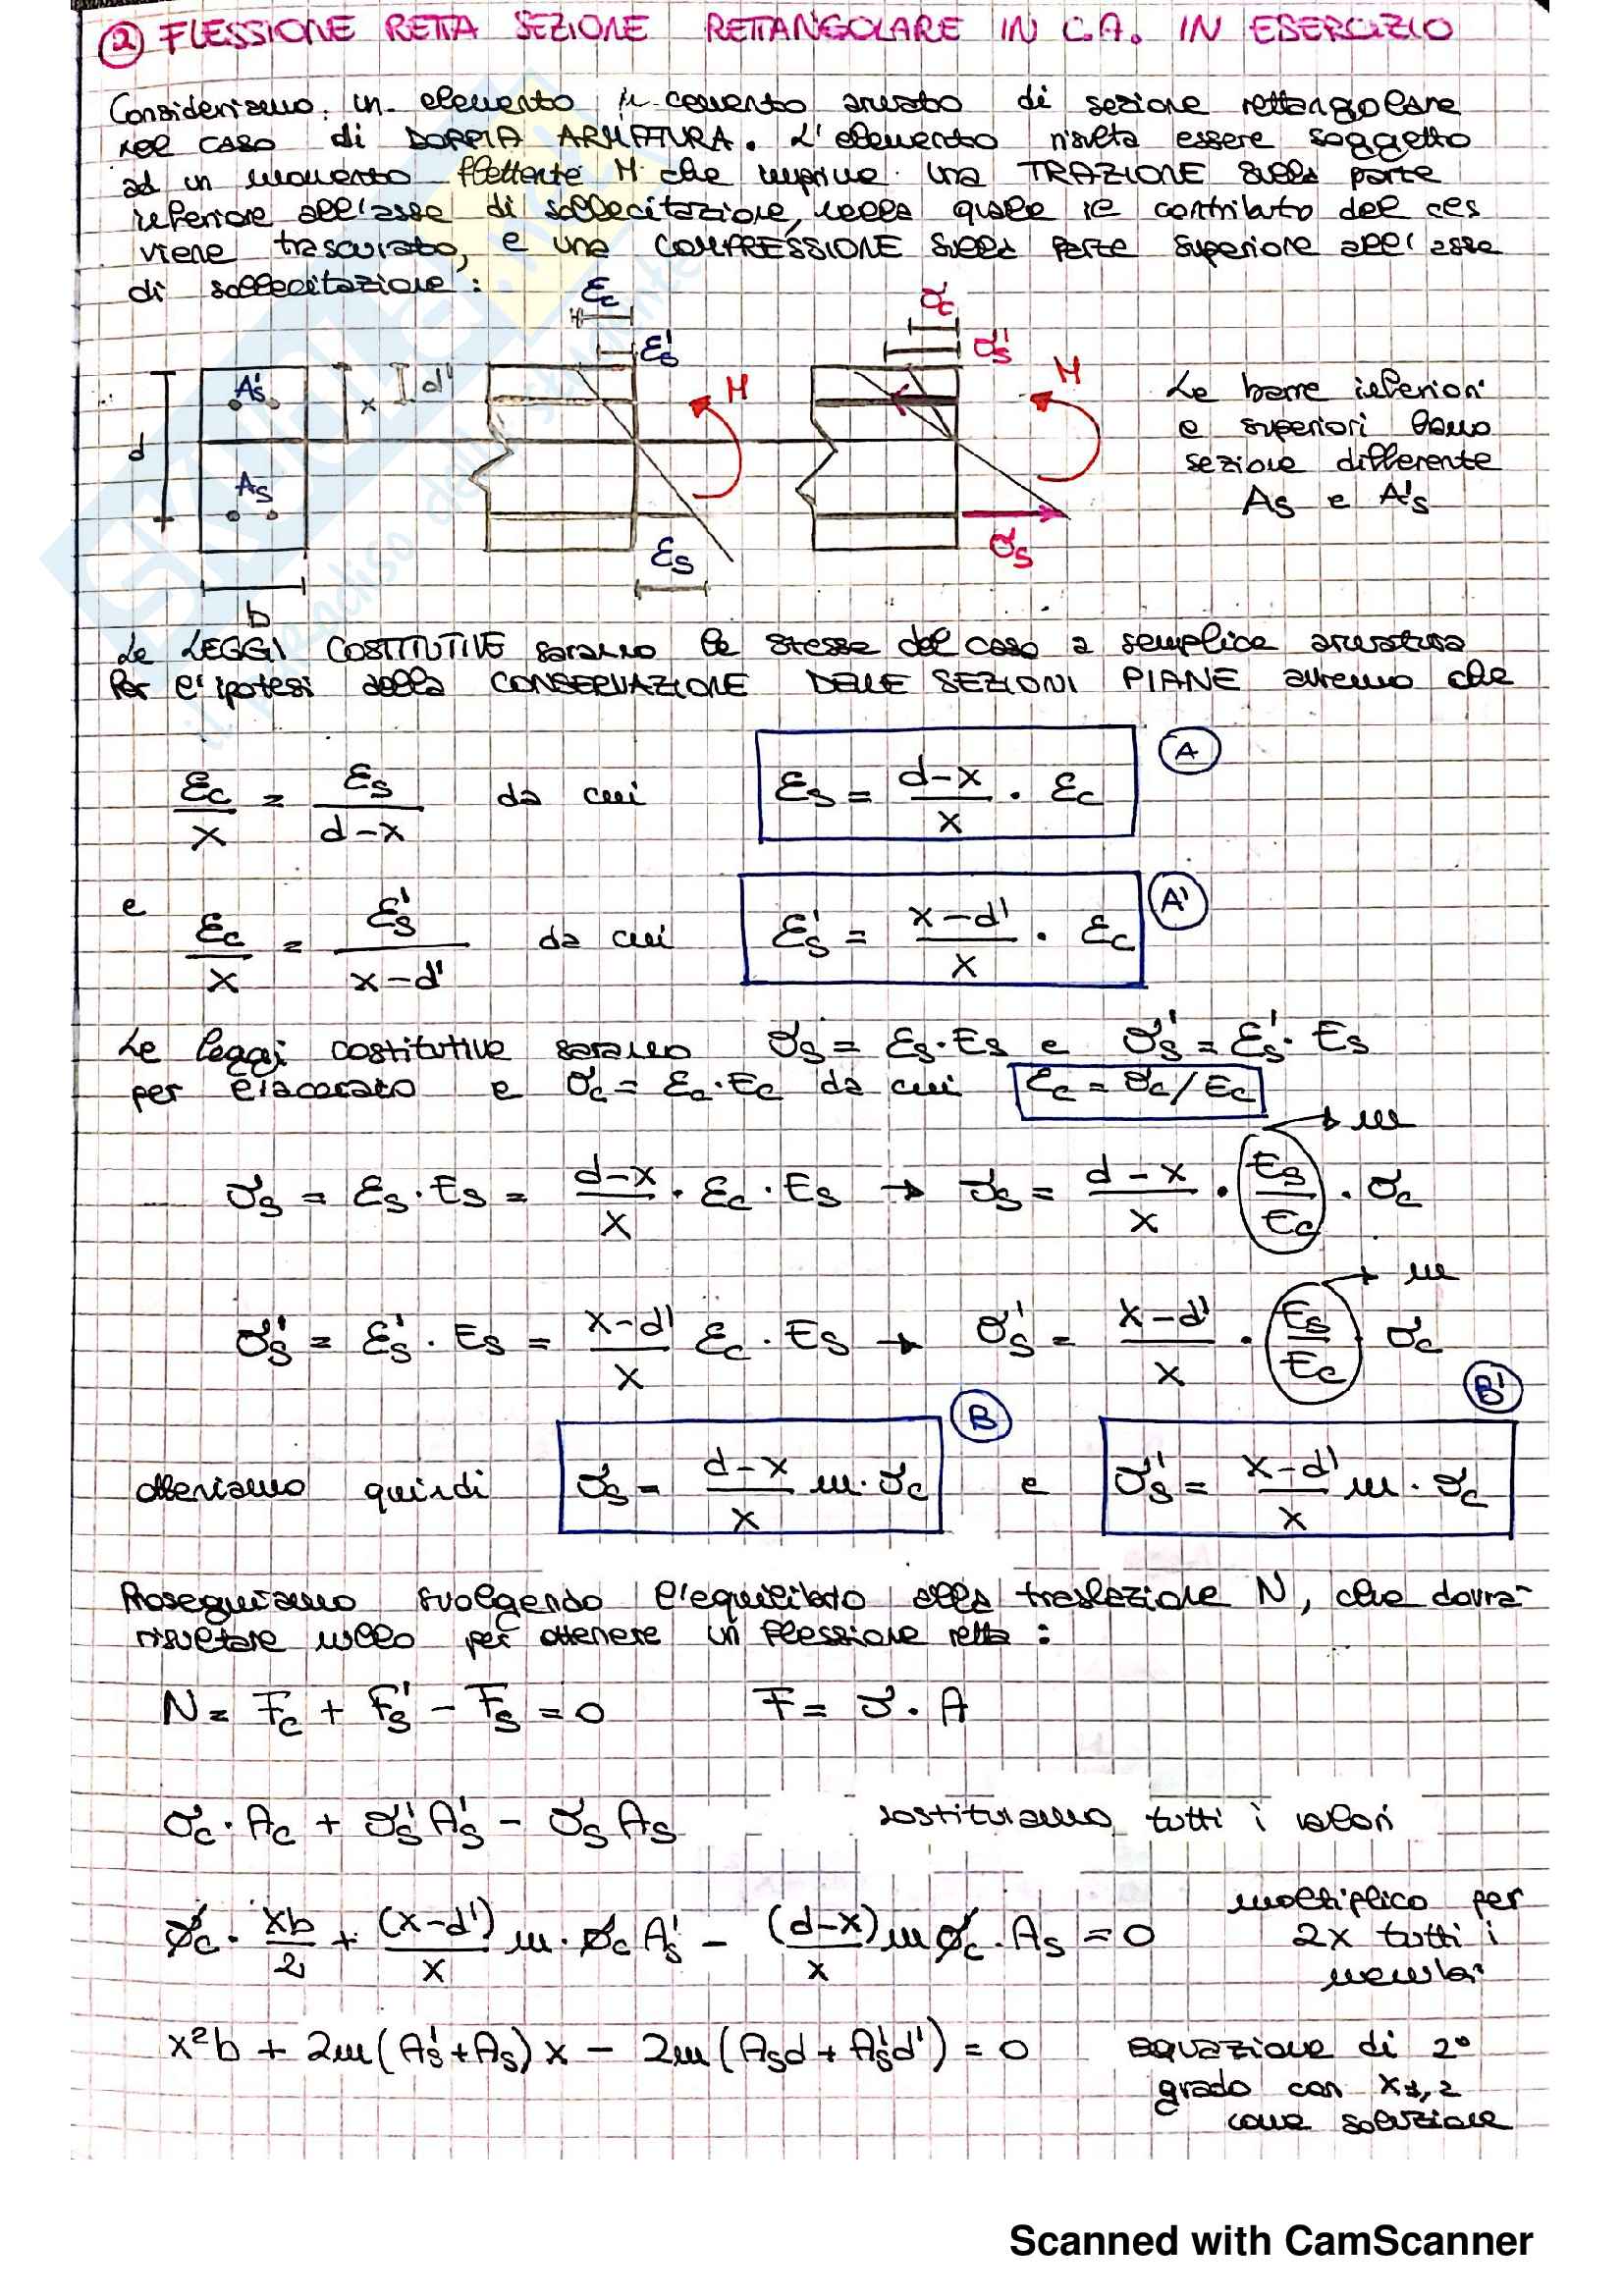 ② FLESSIONE RETTA SEZIONE RETTANGOLARE IN C.A. IN ESERCIZIO
Consideriamo un elemento in cemento armato di sezione rettangolare
nel caso di DOPPIA ARMATURA. L'elemento risulta essere soggetto
ad un momento flettente M che imprime una TRAZIONE sulla parte
inferiore all'asse di sollecitazione, nella quale il contributo del cls
viene trascurato, e una COMPRESSIONE sulla parte superiore all'asse
di sollecitazione:
εc σc
ε's σ's
A's x d' M M
d
As
εs σs
b
Le barre inferiori
e superiori hanno
sezione differente
As e A's
Le LEGGI COSTITUTIVE saranno le stesse del caso a semplice armatura
Per l'ipotesi della CONSERVAZIONE DELLE SEZIONI PIANE avremo che
εc/x = εs/(d-x) da cui εs = (d-x)/x · εc Ⓐ
e εc/x = ε's/(x-d') da cui ε's = (x-d')/x · εc A'
Le leggi costitutive saranno σs = εs·Es e σ's = ε's·Es
per l'acciaio e σc = εc·Ec da cui εc = σc/Ec
σs = εs·Es = (d-x)/x · εc·Es → σs = (d-x)/x · Es/Ec · σc → m
σ's = ε's·Es = (x-d')/x εc·Es → σ's = (x-d')/x · Es/Ec σc → m
otteniamo quindi σs = (d-x)/x m·σc Ⓑ e σ's = (x-d')/x m·σc B'
Proseguiamo svolgendo l'equilibrio alla traslazione N, che dovrà
risultare nullo per ottenere un flessione retta:
N = Fc + F's - Fs = 0 F = σ·A
σc·Ac + σ's A's - σs As sostituiamo tutti i valori
σc · xb/2 + (x-d')/x m·σc A's - (d-x)/x m σc·As = 0
moltiplico per
2x tutti i
membri
x²b + 2m(A's+As)x - 2m(Asd + A'sd') = 0
equazione di 2°
grado con x1,2
come soluzione
Scanned with CamScanner